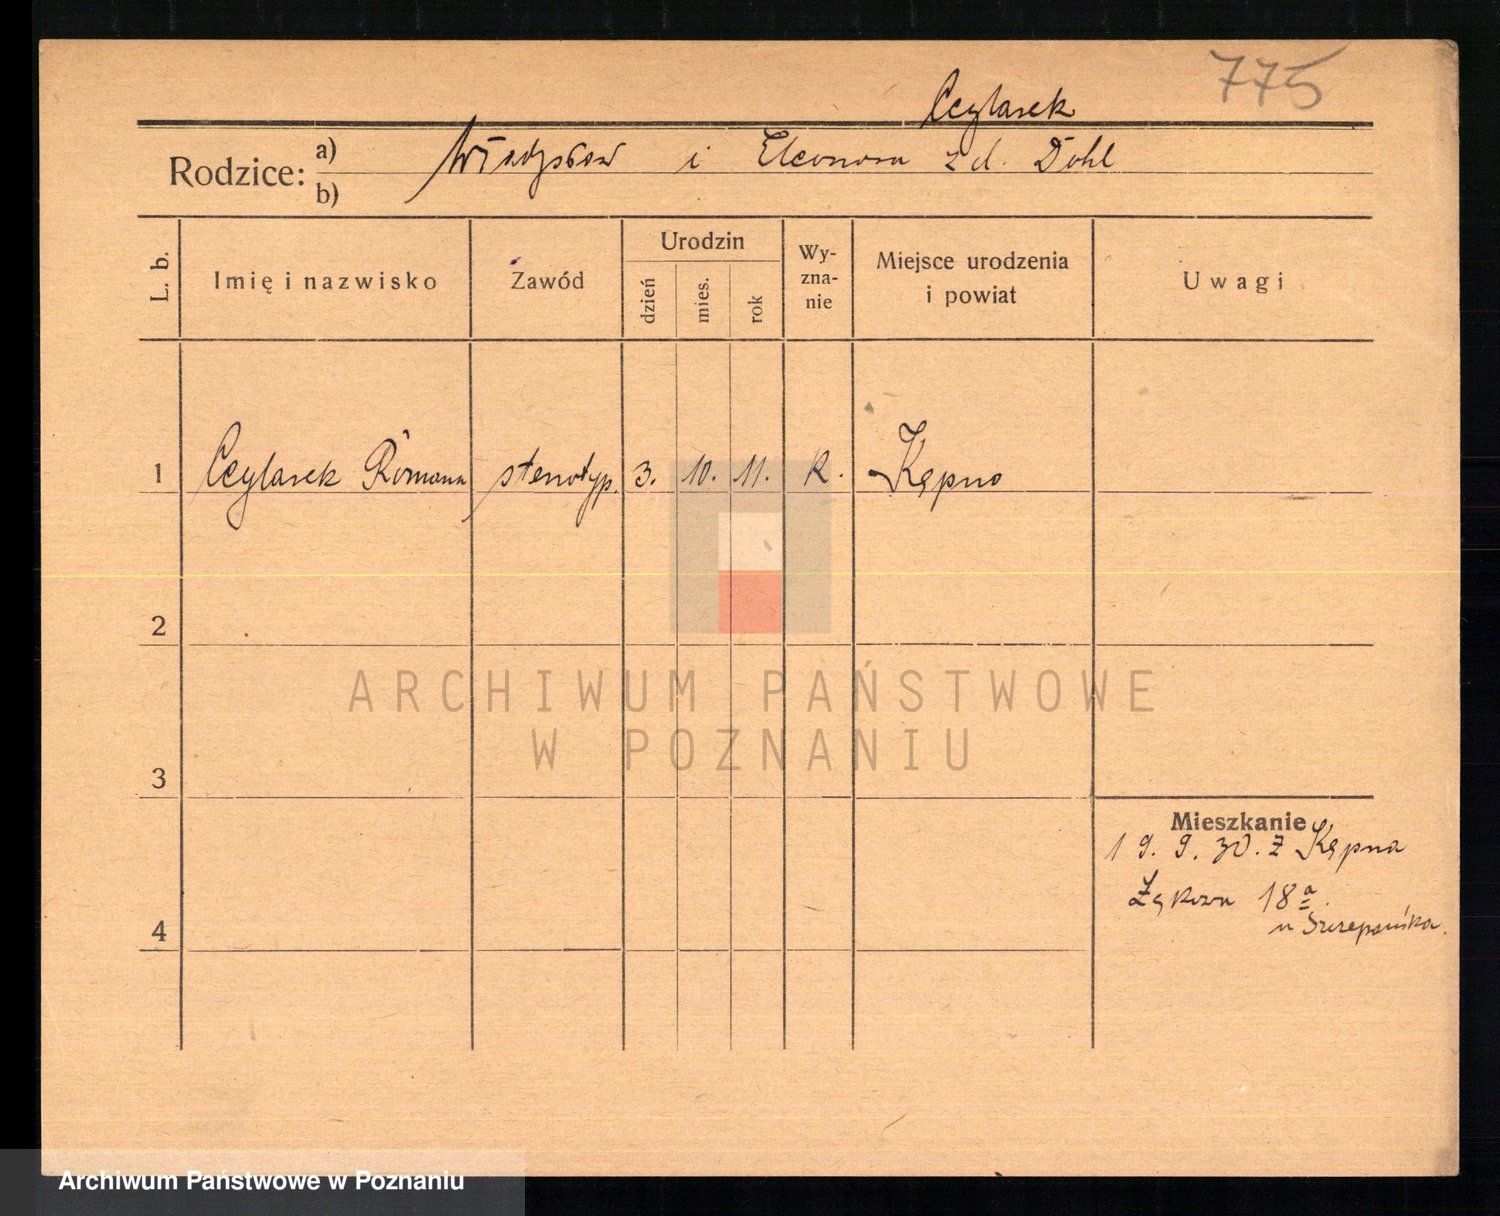 775
Ceglarek
Rodzice: a) Władysław i Eleonora z d. Dohl
b)
L. b.
Imię i nazwisko
Zawód
Urodzin
dzień
mies.
rok
Wy-
zna-
nie
Miejsce urodzenia
i powiat
Uwagi
1 Ceglarek Romana stenotyp. 3. 10. 11. k. Kępno
2
ARCHIWUM PAŃSTWOWE
W POZNANIU
3
Mieszkanie
19. 9. 30. z Kępna
Łąkowa 18a
u Szczepańska.
4
Archiwum Państwowe w Poznaniu